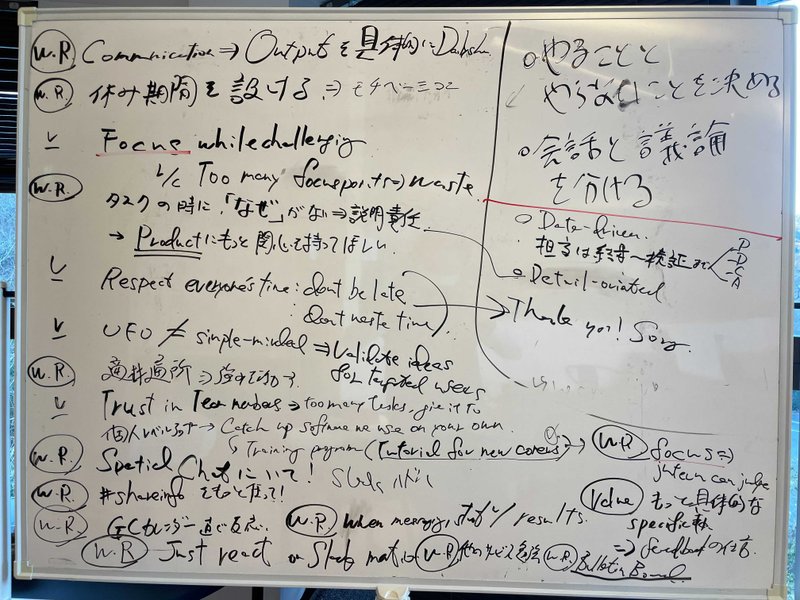 W.R. Communication ⇒ Outputを具体的に
W.R. 休み期間を設ける ⇒ モチベーション
Focus while challenging
Too many focus points ⇒ waste
W.R. タスクの時に、「なぜ」がない ⇒ 説明責任
→ Productにもっと関心を持ってほしい
Respect everyone's time: don't be late
don't waste time
UFO ≠ simple-minded ⇒ Validate ideas
for targeted users
W.R. 適材適所 ⇒
Trust in Team members ⇒ too many tasks, give it to
個人レベル → Catch up software we use on your own.
Training program (Tutorial for new comers)
W.R. Spatial Chatにいて!
W.R. #shareinfoをもっと使って!
W.R. GCカレンダー
W.R. when messaging, start w/ results.
W.R. Just react on Slack
W.R.
W.R. Bulletin Board
○やることと
やらないことを決める
○会話と議論
を分ける
○ Data-driven
担当は 検証まで
P
D
C
A
○ Detail-oriented
Thank you! Sorry.
W.R. focus ⇒
intern can judge
Value もっと具体的な
specific
⇒ feedbackの仕方